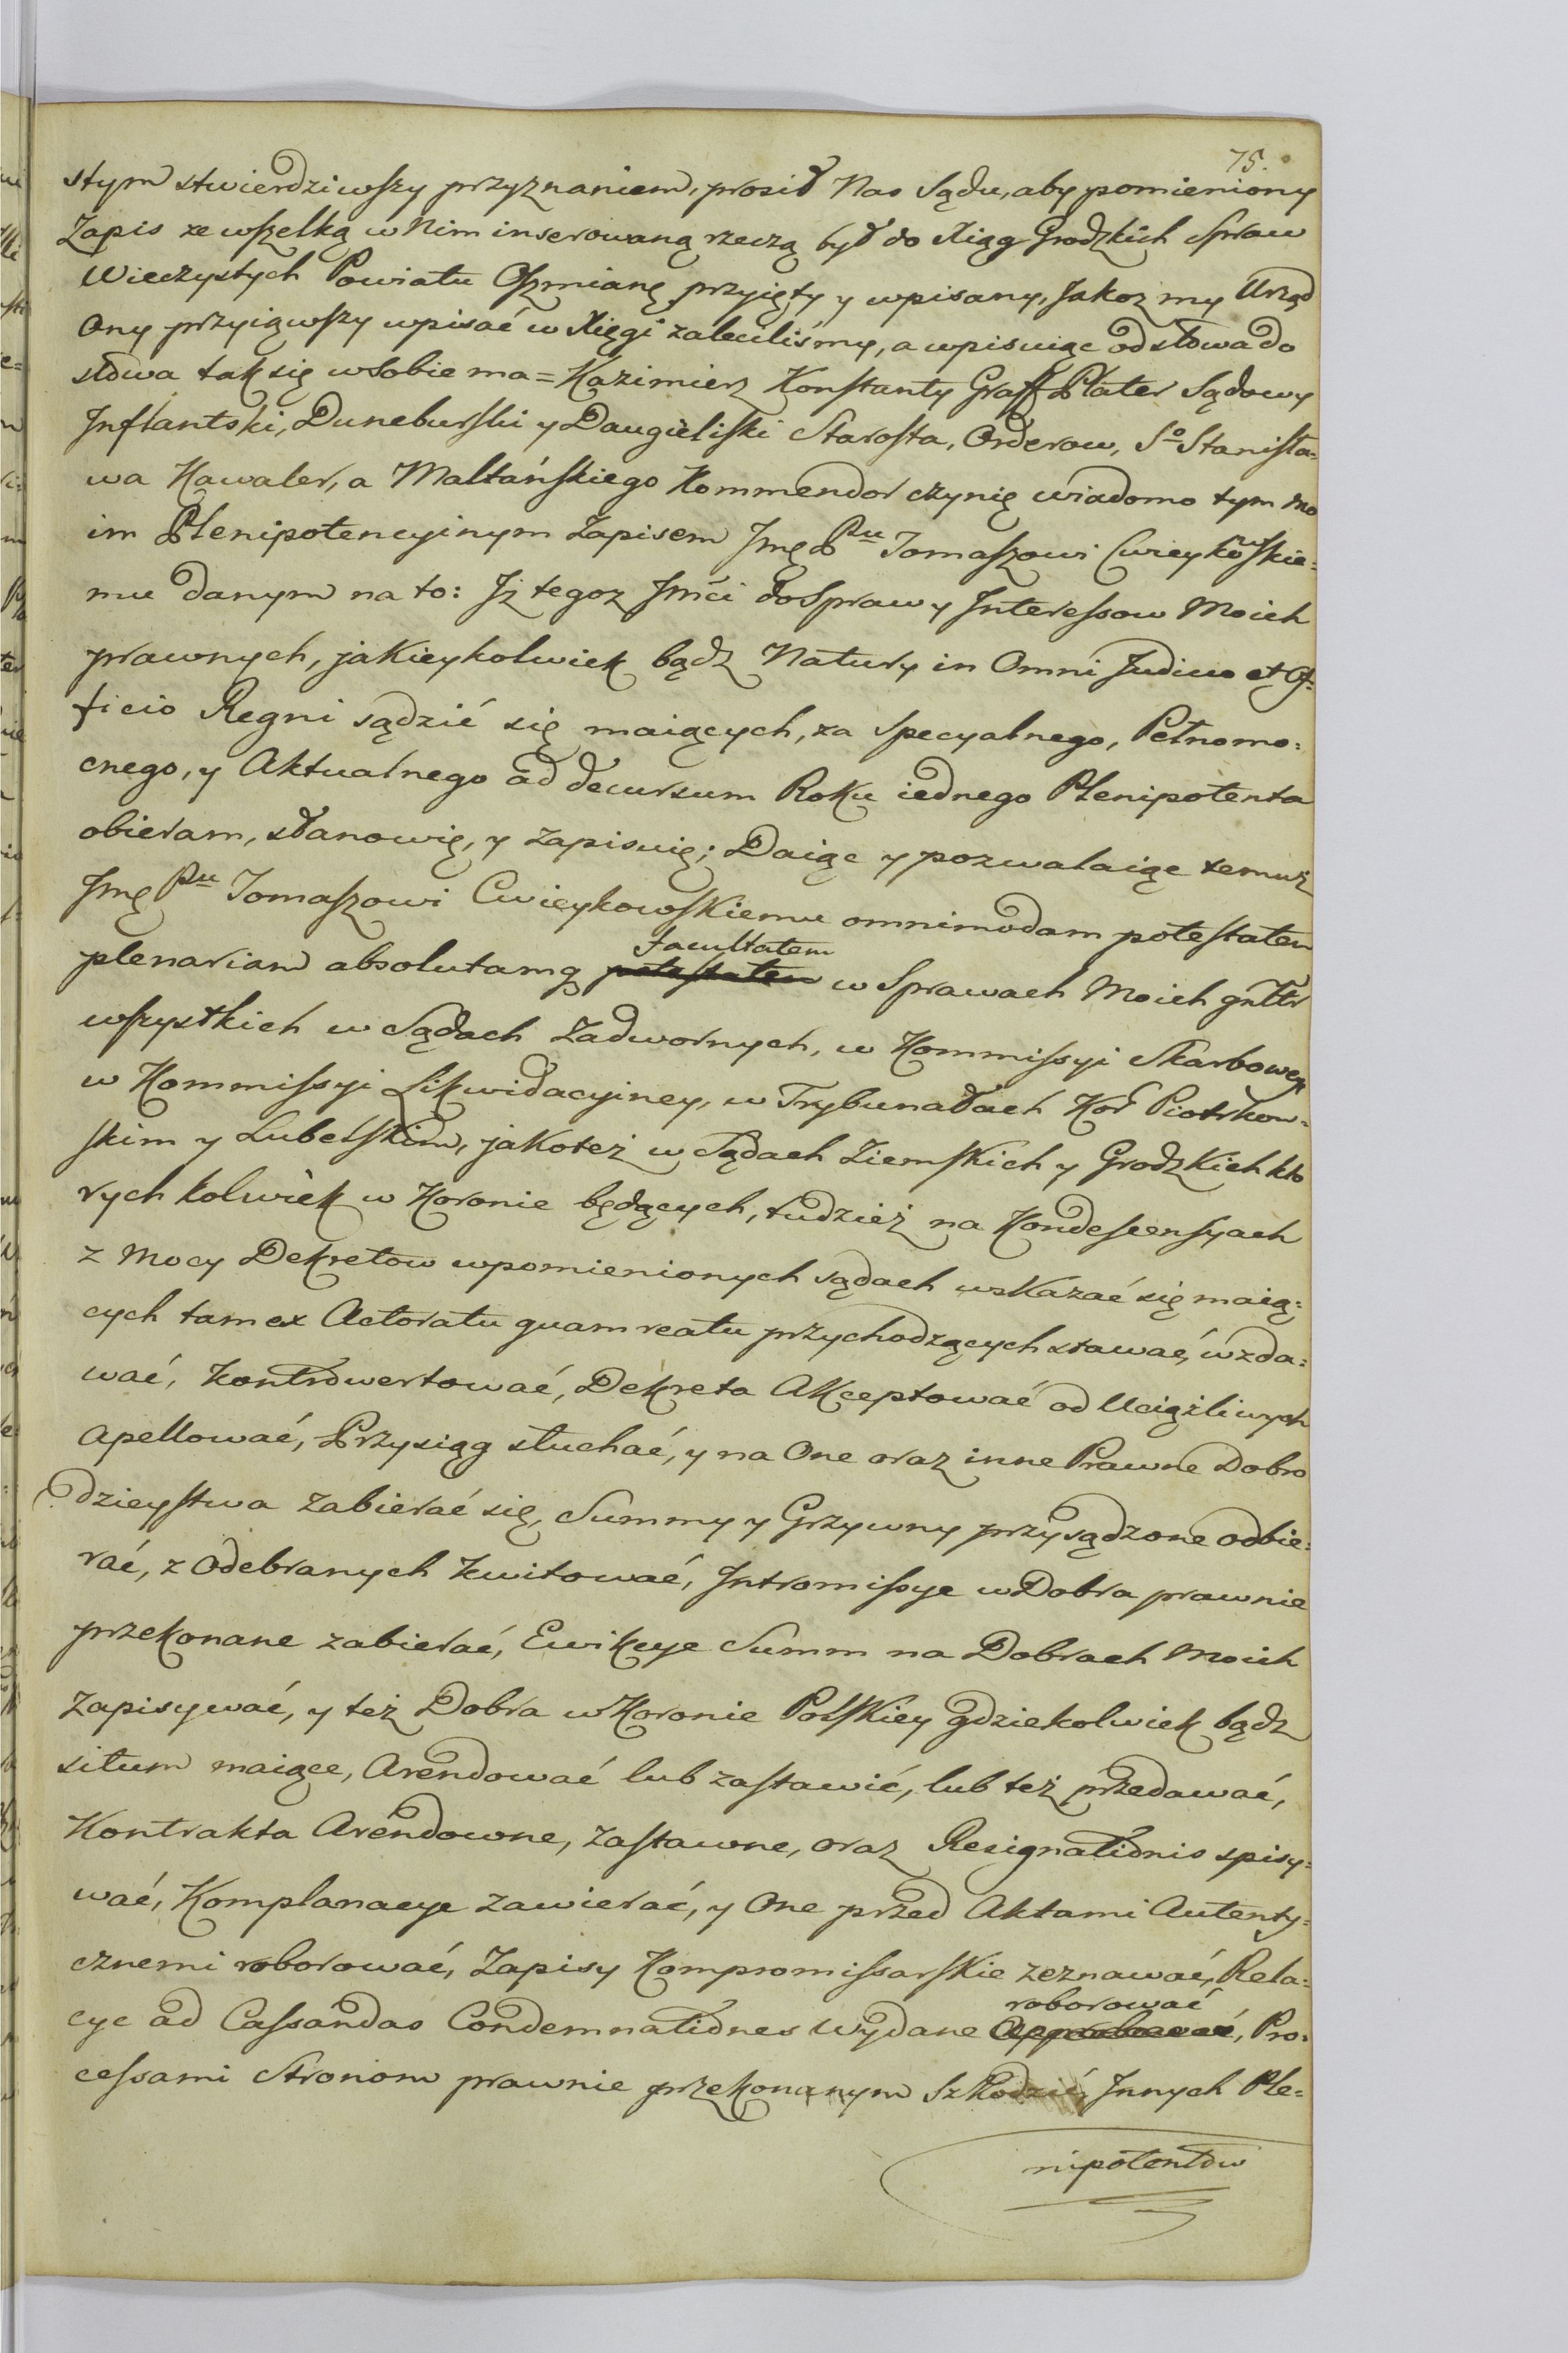 75.
stym stwierdziwszy przyznaniem, prosił Nas Sądu, aby pomieniony
Zapis ze wszelką w Nim inserowaną rzeczą był do Xiąg Grodzkich Spraw
Wieczystych Powiatu Oszmianę przyięty y wpisany, Jakoz my Urząd
Ony przyiąwszy wpisać w Xięgi zaleciliśmy, a wpisuiąc od słowa do
słowa tak się w sobie ma = Kazimierz Konstanty Graff Plater Sądowy
Inflantski, Duneburski y Daugieliski Starosta, Orderow, So Stanisła=
wa Kawaler, a Maltańskiego Kommendor czynię wiadomo tym mo
im Plenipotencyinym Zapisem Jmę Pnu Tomaszowi Cwieykowskie=
mu danym na to: Iż tegoz Jmći do Spraw y Interessow Moich
prawnych, jakieykolwiek bądz Natury in Omni Judicio et Of=
ficio Regni sądzić się maiących, za specyalnego, Pełnomo=
cnego, y Aktualnego ad decursum Roku iednego Plenipotenta
obieram, stanowię, y zapisuię; Daiąc y pozwalaiąc temuż
Jmę Pnu Tomaszowi Cwieykowskiemu omnimodam potestatem
facultatem
plenariam absolutamq potestatem w Sprawach Moich gnłtr
wszystkich w Sądach Zadwornych, w Kommissyi Skarbowey
w Kommissyi Likwidacyiney, w Trybunałach Kor Piotrkow=
skim y Lubelskim, jakoteż w Sądach Ziemskich y Grodzkich kto
rych kolwiek w Koronie będących, tudzież na Kondescensyach
z Mocy Dekretow w pomienionych sądach wskazać się maią=
cych tam ex Actoratu quam reatu przychodzących stawać, wzda=
wać, kontrowertować, Dekreta Akceptować od Uciążliwych
Apellować, Przysiąg słuchać, y na One oraz inne Prawne Dobro
dzieystwa Zabierać się, Summy y Grzywny przysądzone odbie=
rać, z odebranych kwitować, Intromissye w Dobra prawnie
przekonane zabierać, Ewikcye Summ na Dobrach Moich
Zapisywać, y też Dobra w Koronie Polskiey gdziekolwiek bądz
situm maiące, Arendować lub zastawić, lub też przedawać,
Kontrakta Arendowne, zastawne, oraz Resignationis spisy=
wać, Komplanacye zawierać, y One przed Aktami Autenty=
cznemi roborować, Zapisy Kompromissarskie zeznawać, Rela=
roborować
cye ad Cassandas Condemnationes wydane Approbować, Pro=
cessami Stronom prawnie przekonanym Szkodzić, Innych Ple=
nipotentow